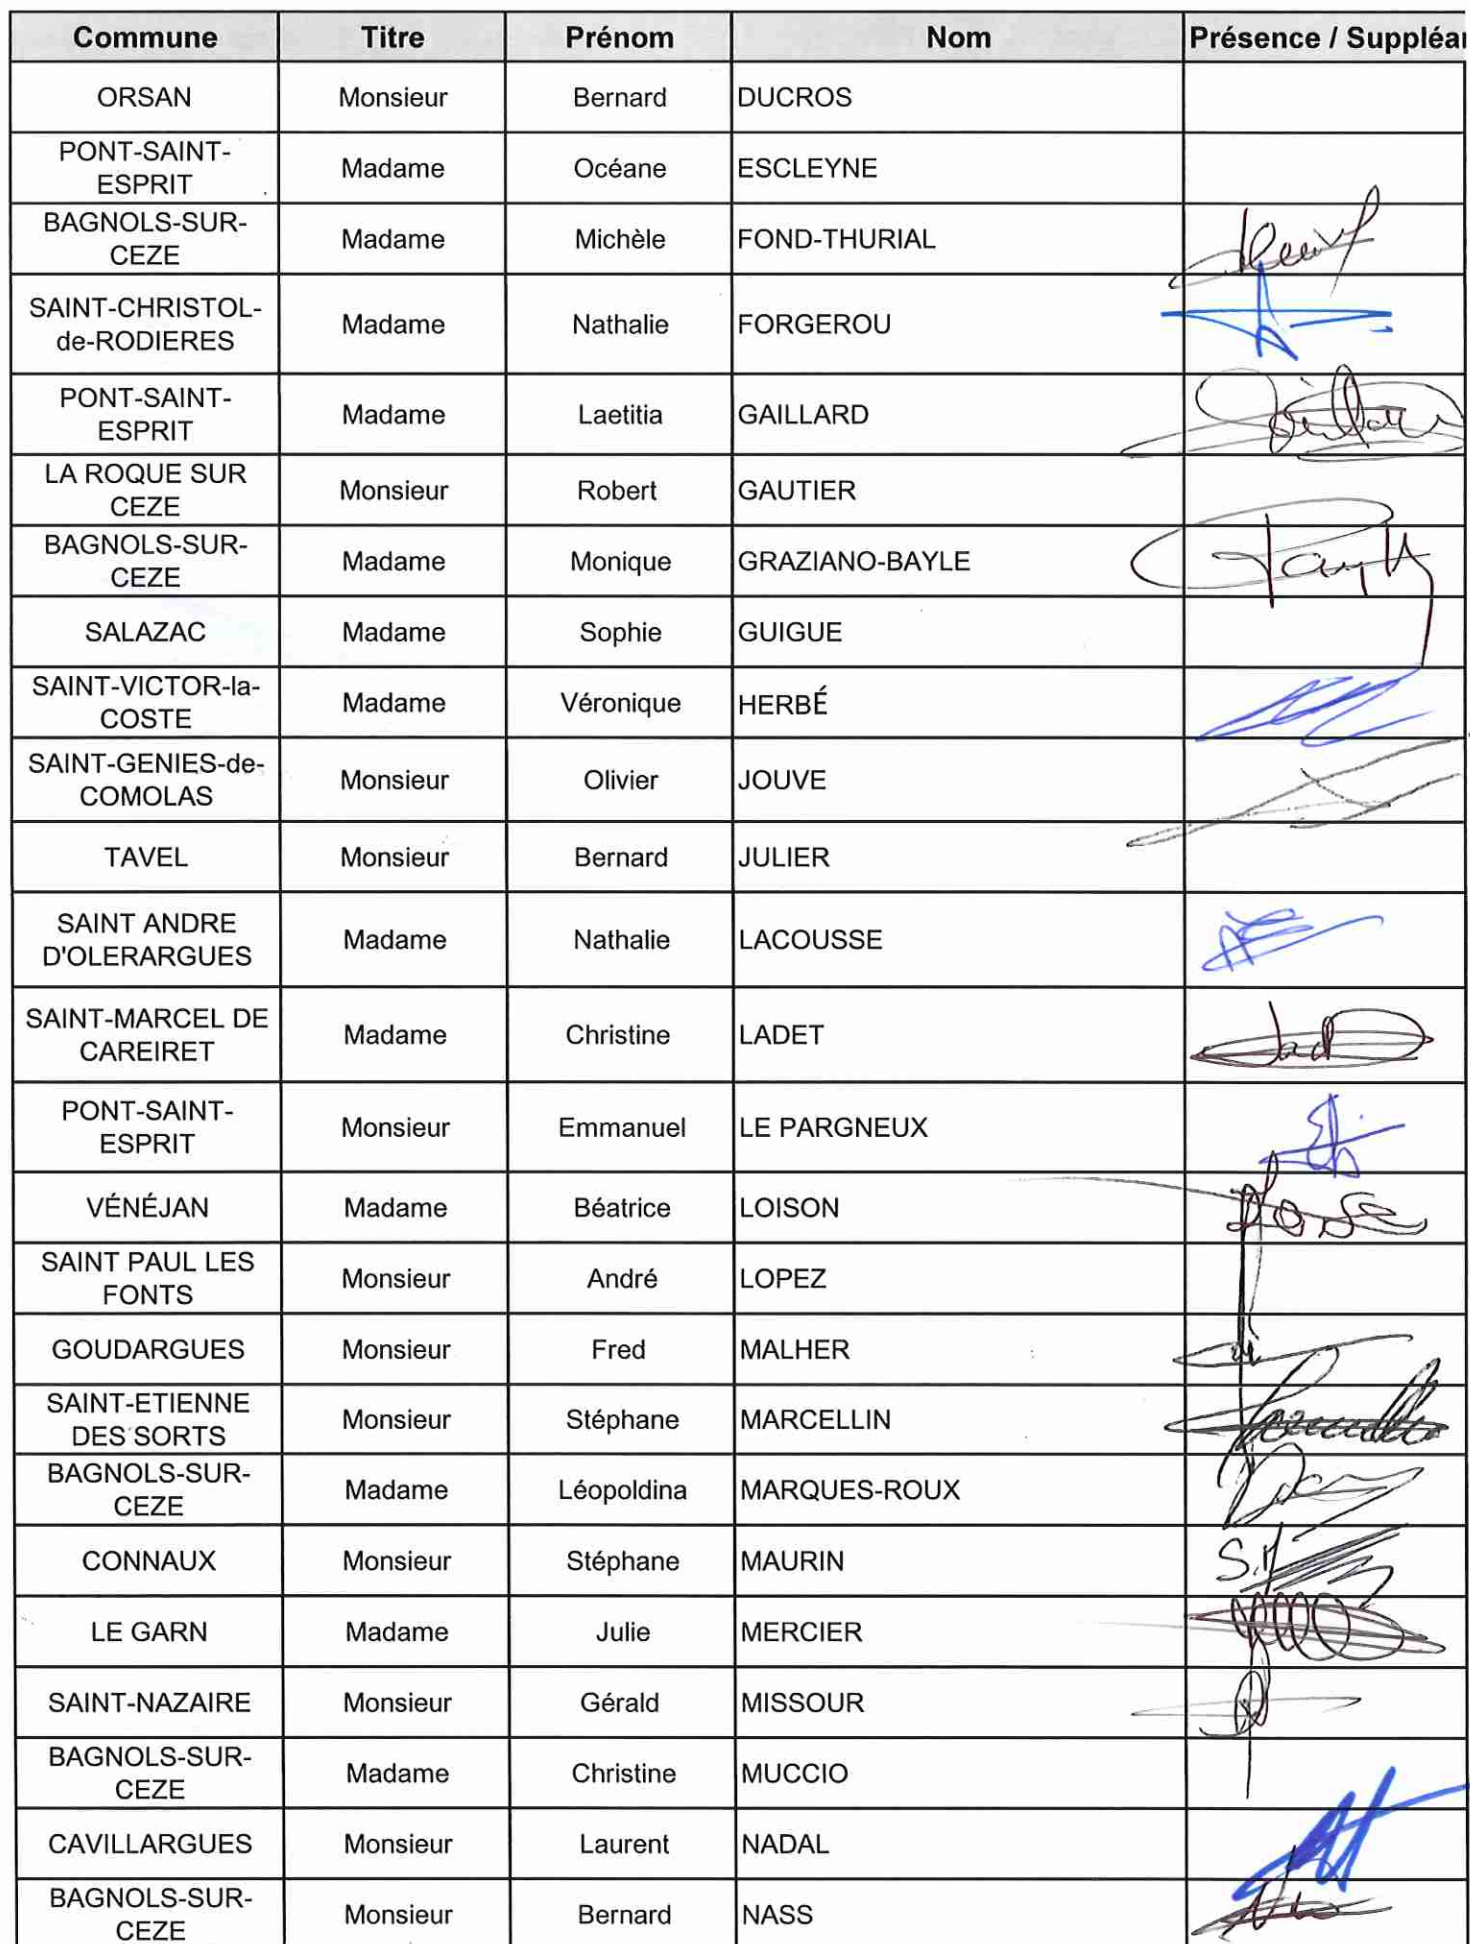 Commune Titre Prénom Nom Présence / Suppléa
ORSAN Monsieur Bernard DUCROS
PONT-SAINT-
ESPRIT Madame Océane ESCLEYNE
BAGNOLS-SUR-
CEZE Madame Michèle FOND-THURIAL
SAINT-CHRISTOL-
de-RODIERES Madame Nathalie FORGEROU
PONT-SAINT-
ESPRIT Madame Laetitia GAILLARD
LA ROQUE SUR
CEZE Monsieur Robert GAUTIER
BAGNOLS-SUR-
CEZE Madame Monique GRAZIANO-BAYLE
SALAZAC Madame Sophie GUIGUE
SAINT-VICTOR-la-
COSTE Madame Véronique HERBÉ
SAINT-GENIES-de-
COMOLAS Monsieur Olivier JOUVE
TAVEL Monsieur Bernard JULIER
SAINT ANDRE
D'OLERARGUES Madame Nathalie LACOUSSE
SAINT-MARCEL DE
CAREIRET Madame Christine LADET
PONT-SAINT-
ESPRIT Monsieur Emmanuel LE PARGNEUX
VÉNÉJAN Madame Béatrice LOISON
SAINT PAUL LES
FONTS Monsieur André LOPEZ
GOUDARGUES Monsieur Fred MALHER
SAINT-ETIENNE
DES SORTS Monsieur Stéphane MARCELLIN
BAGNOLS-SUR-
CEZE Madame Léopoldina MARQUES-ROUX
CONNAUX Monsieur Stéphane MAURIN
LE GARN Madame Julie MERCIER
SAINT-NAZAIRE Monsieur Gérald MISSOUR
BAGNOLS-SUR-
CEZE Madame Christine MUCCIO
CAVILLARGUES Monsieur Laurent NADAL
BAGNOLS-SUR-
CEZE Monsieur Bernard NASS